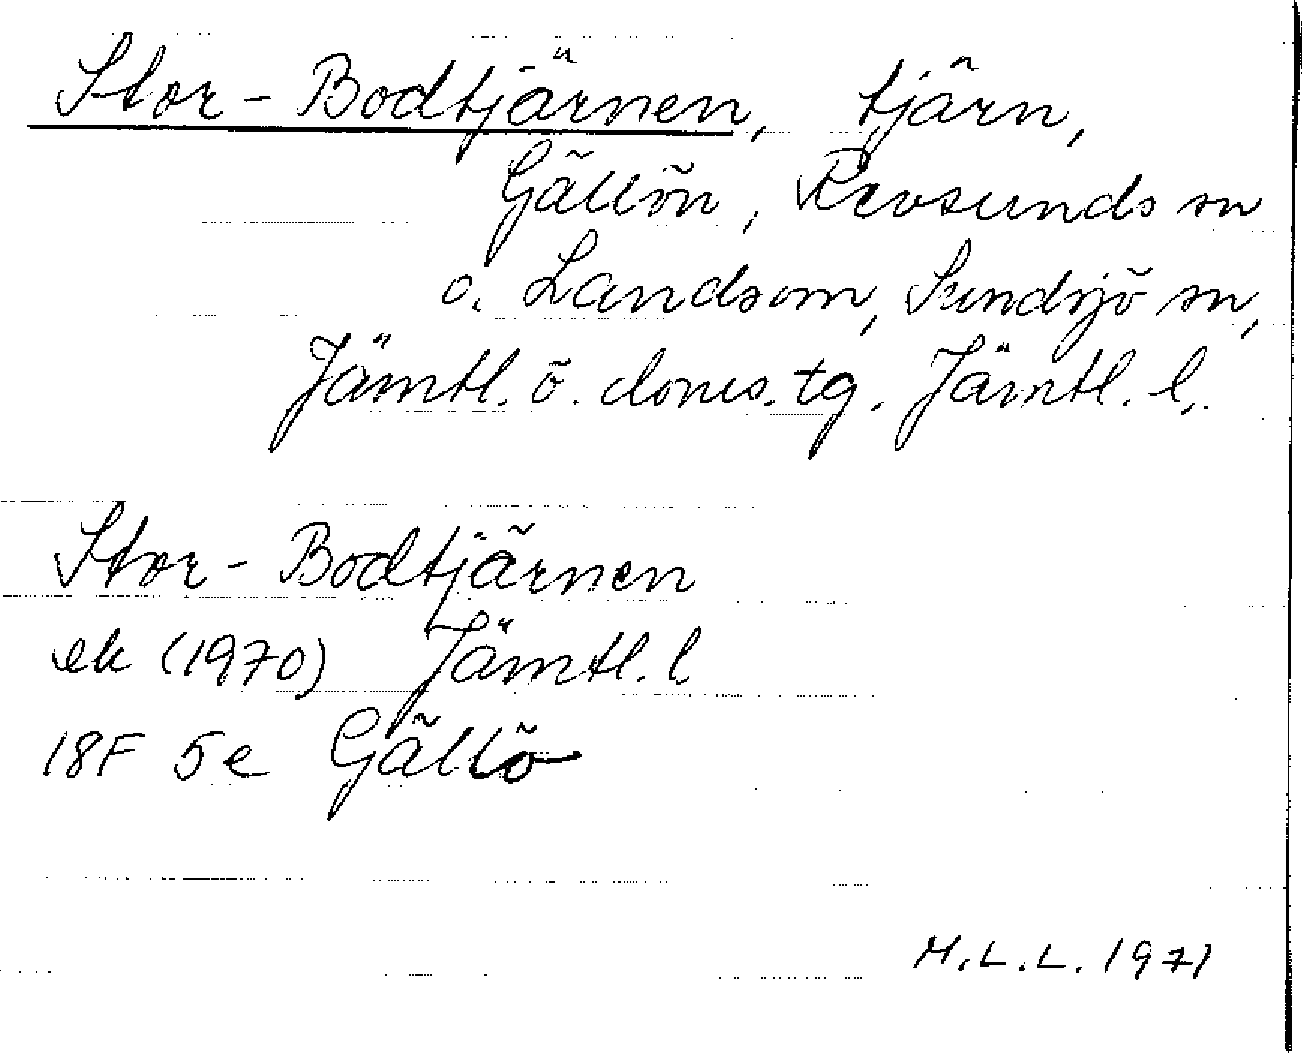 Stor-Bodtjärnen, tjärn,
Gällön, Revsunds sn
o. Landsom, Sundsjö sn,
Jämtl. ö. doms. tg. Jämtl. l.
Stor-Bodtjärnen
ek (1970) Jämtl. l
18F 5e Gällö
M.L.L. 1971